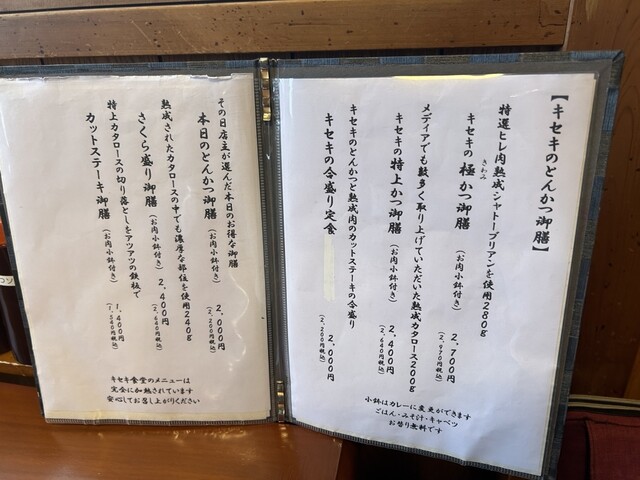 【キセキのとんかつ御膳】
特選ヒレ肉熟成シャトーブリアンを使用280g
きわみ
キセキの極かつ御膳(お肉小鉢付き) 2,700円
(2,970円税込)
メディアでも数多く取り上げていただいた熟成カタロース200g
キセキの特上かつ御膳(お肉小鉢付き) 2,400円
(2,640円税込)
キセキのとんかつと熟成肉のカットステーキの合盛り
キセキの合盛り定食 2,000円
(2,200円税込)
小鉢はカレーに変更ができます
ごはん・みそ汁・キャベツ
お替り無料です
その日店主が選んだ本日のお得な御膳
本日のとんかつ御膳(お肉小鉢付き) 2,000円
(2,200円税込)
熟成されたカタロースの中でも濃厚な部位を使用240g
さくら盛り御膳(お肉小鉢付き) 2,400円
(2,640円税込)
特上カタロースの切り落としをアツアツの鉄板で
カットステーキ御膳(お肉小鉢付き) 1,400円
(1,540円税込)
キセキ食堂のメニューは
完全に加熱されています
安心してお召し上がりください